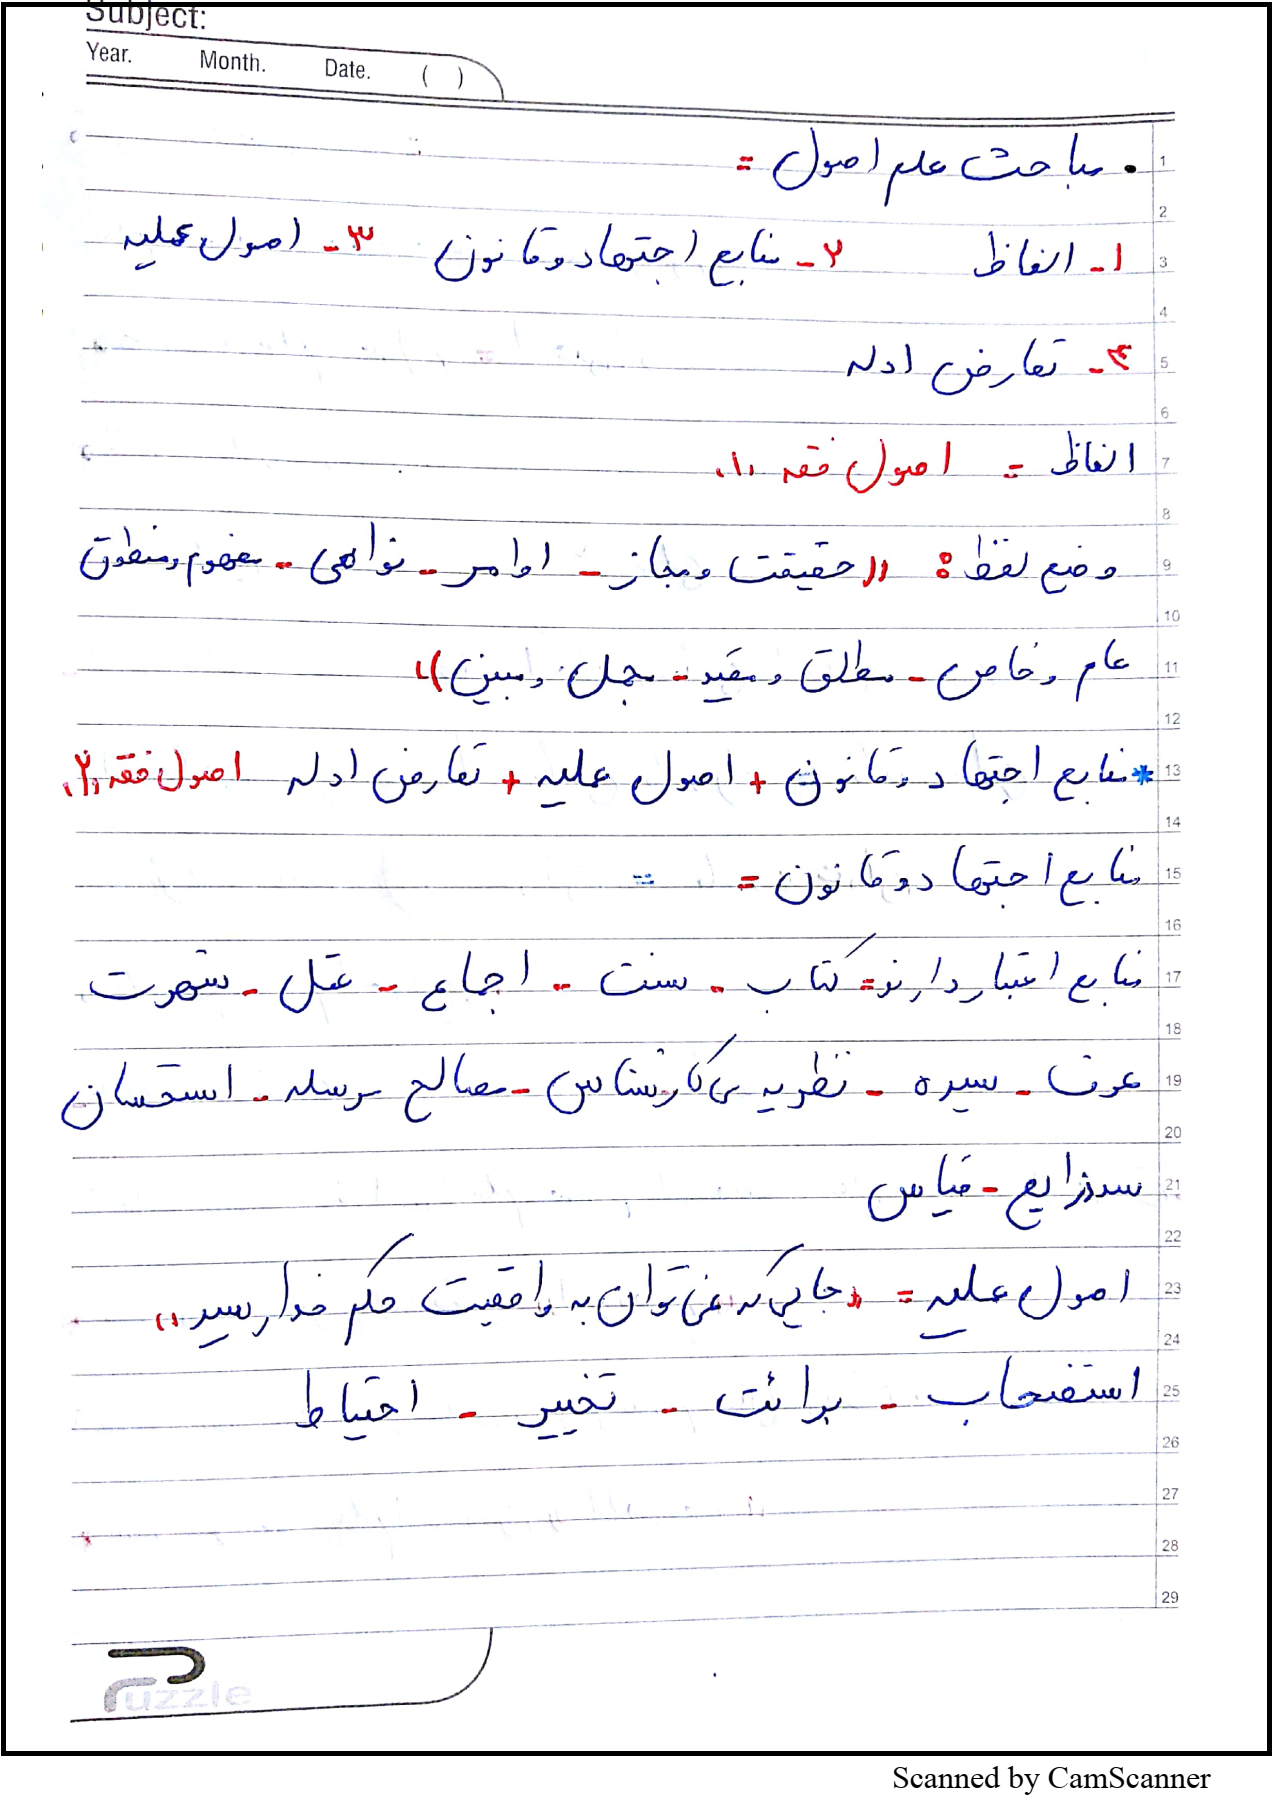 Subject:
Year. Month. Date. ( )
• مباحث علم اصول =
۱- الفاظ ۲- منابع اجتهاد و قانون ۳- اصول عملیه
۴- تعارض ادله
الفاظ = اصول فقه «۱»
وضع لفظ: «حقیقت و مجاز - اوامر - نواهی - مفهوم و منطوق
عام و خاص - مطلق و مقید - مجمل و مبین»
* منابع اجتهاد و قانون + اصول عملیه + تعارض ادله اصول فقه «۲»
منابع اجتهاد و قانون =
منابع اعتبار دارند = کتاب - سنت - اجماع - عقل - شهرت
عرف - سیره - نظریه ی کارشناس - مصالح مرسله - استحسان
سد ذرایع - قیاس
اصول عملیه = «جایی که نمی توان به واقعیت حکم خدا رسید»
استصحاب - برائت - تخییر - احتیاط
1
2
3
4
5
6
7
8
9
10
11
12
13
14
15
16
17
18
19
20
21
22
23
24
25
26
27
28
29
Puzzle
Scanned by CamScanner